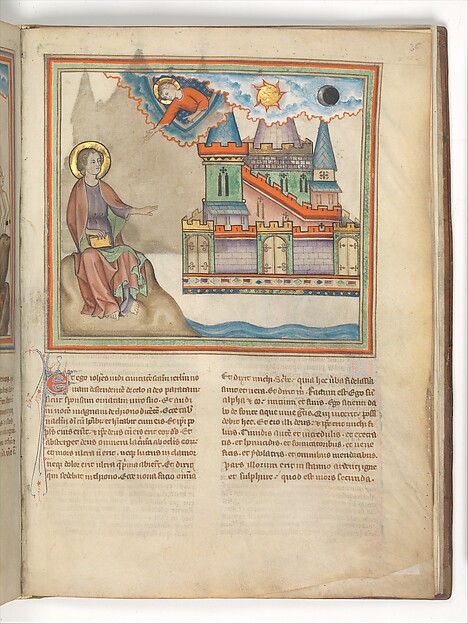 Et ego ioh̄es vidi ciuitatem sc̄am ierl̄m no
uam descendentem de celo a deo paratam
sicut sponsam ornatam viro suo. Et audi
ui vocē magnā de throno dicētē. Ecce tab̄
naculū dei cū hōib; et habitabit cum eis. Et ip̄i po
pl̄s eius erūt. et ip̄e deus cū eis erit eoꝝ ds̄. Et
absterget deus omnem lac̄mā ab oculis eoꝝ
et mors ultra nō erit. neqꝫ luctus neqꝫ clamor
neqꝫ dolor erit ultra q̄ prima abierūt. Et dixit
qui sedebat in throno. Ecce noua facio omīa.
Et dixit michi. Scribe. quia hec v̄ba fidelissīa
sunt et uera. Et dixit m̄. Factum est. Ego sū
alpha et ω. inicium et finis. Ego sicienti da
bo de fonte aque uiue gr̄tis. Qui vicerit poss
debit hec. Et ero illi deus. et ip̄e erit michi fi
lius. Timidis autē et incredulis. et execratis
et homicidis. et fornicatorib;. et uenefi
cis. et ydolatris. et omnibus mendacibus.
pars illorum erit in stagno ardenti igne
et sulphure. quod est mors secunda.